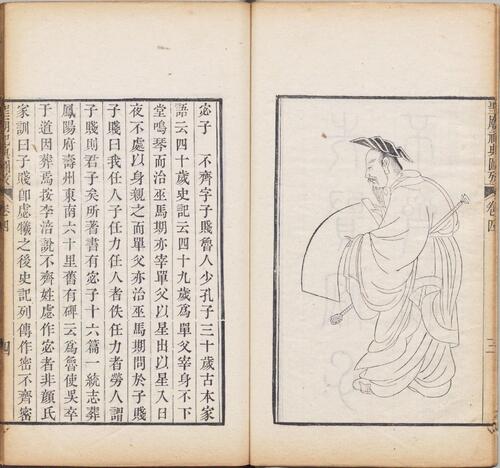 聖廟祀典圖攷 卷四 三
宓子 不齊字子賤魯人少孔子三十歲古本家
語云四十歲史記云四十九歲爲單父宰身不下
堂鳴琴而治巫馬期亦宰單父以星出以星入日
夜不處以身親之而單父亦治巫馬期問於子賤
子賤曰我任人子任力任人者佚任力者勞人謂
子賤則君子矣所著書有宓子十六篇一統志葬
鳳陽府壽州東南六十里舊有碑云爲魯使吳卒
于道因葬焉按李涪說不齊姓虙作宓者非顏氏
家訓曰子賤卽虙犧之後史記列傳作密不齊密
聖廟祀典圖攷 卷四 四